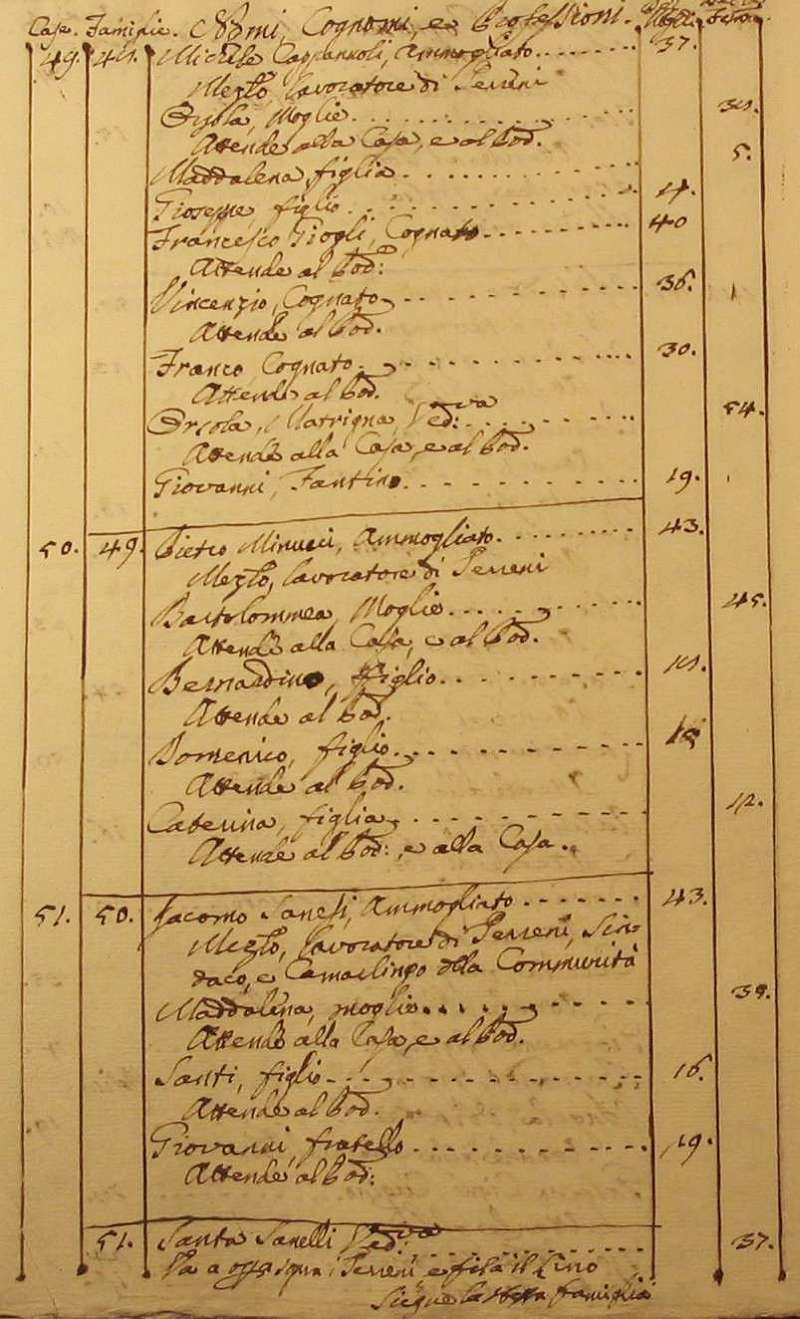 Case. Famiglie. Nomi, Cognomi, e Professioni.
49. Michele Cappannoli, Ammogliato 37.
Mezzo, Lavoratore di Terreni
Orsola, Moglie
Attende alla Casa, e al Pod.
Maddalena, figlia 5.
Gioseppe, figlio 4.
Francesco Giogli, Cognato 40
Attende al Pod:
Vincenzio, Cognato 36.
Attende al Pod.
Franco Cognato 30.
Attende al Pod.
Orsola, Matrigna, Ved:va 54.
Attende alla Casa, e al Pod.
Giovanni, Fantino 19.
50. 49. Pietro Minucci, Ammogliato 43.
Mezzo, Lavoratore di Terreni
Bartolommea, Moglie 45.
Attende alla Casa, e al Pod.
Bernardino, figlio
Attende al Pod.
Domenico, figlio
Attende al Pod.
Caterina, figlia 12.
Attende al Pod:, e alla Casa.
51. 50. Jacomo Sanesi, Ammogliato 43.
Mezzo, Lavoratore di Terreni, Sin-
daco, e Camarlingo della Communità
Maddalena, moglie 39.
Attende alla Casa, e al Pod.
Santi, figlio 16.
Attende al Pod.
Giovanni, fratello 19.
Attende al Pod:
51. Santa Sanelli Ved:va 37.
Va a opra Terreni, e fila il Lino
Siegue la stessa famiglia